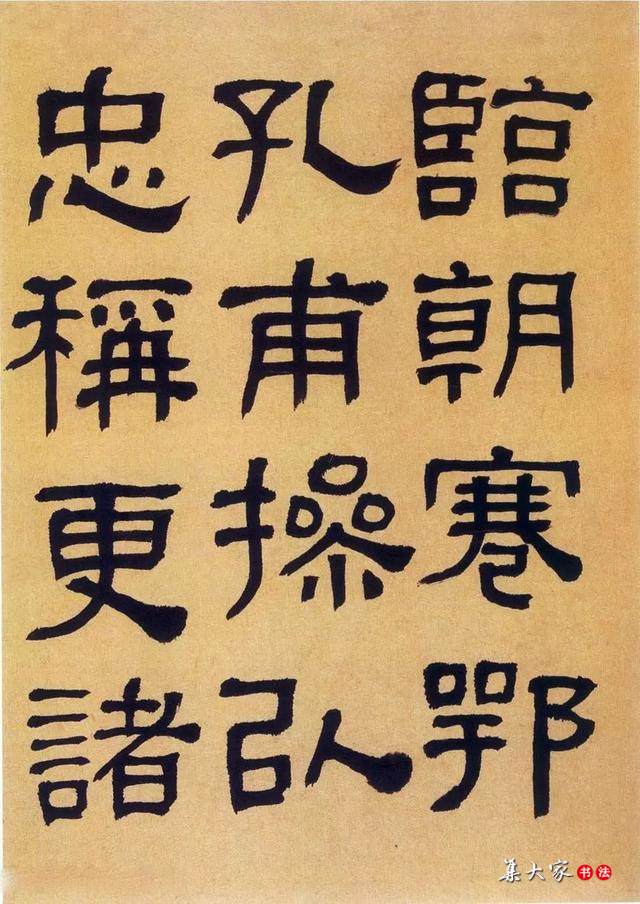 臨朝寋鄂
孔甫操以
忠稱更諸
集大家书法